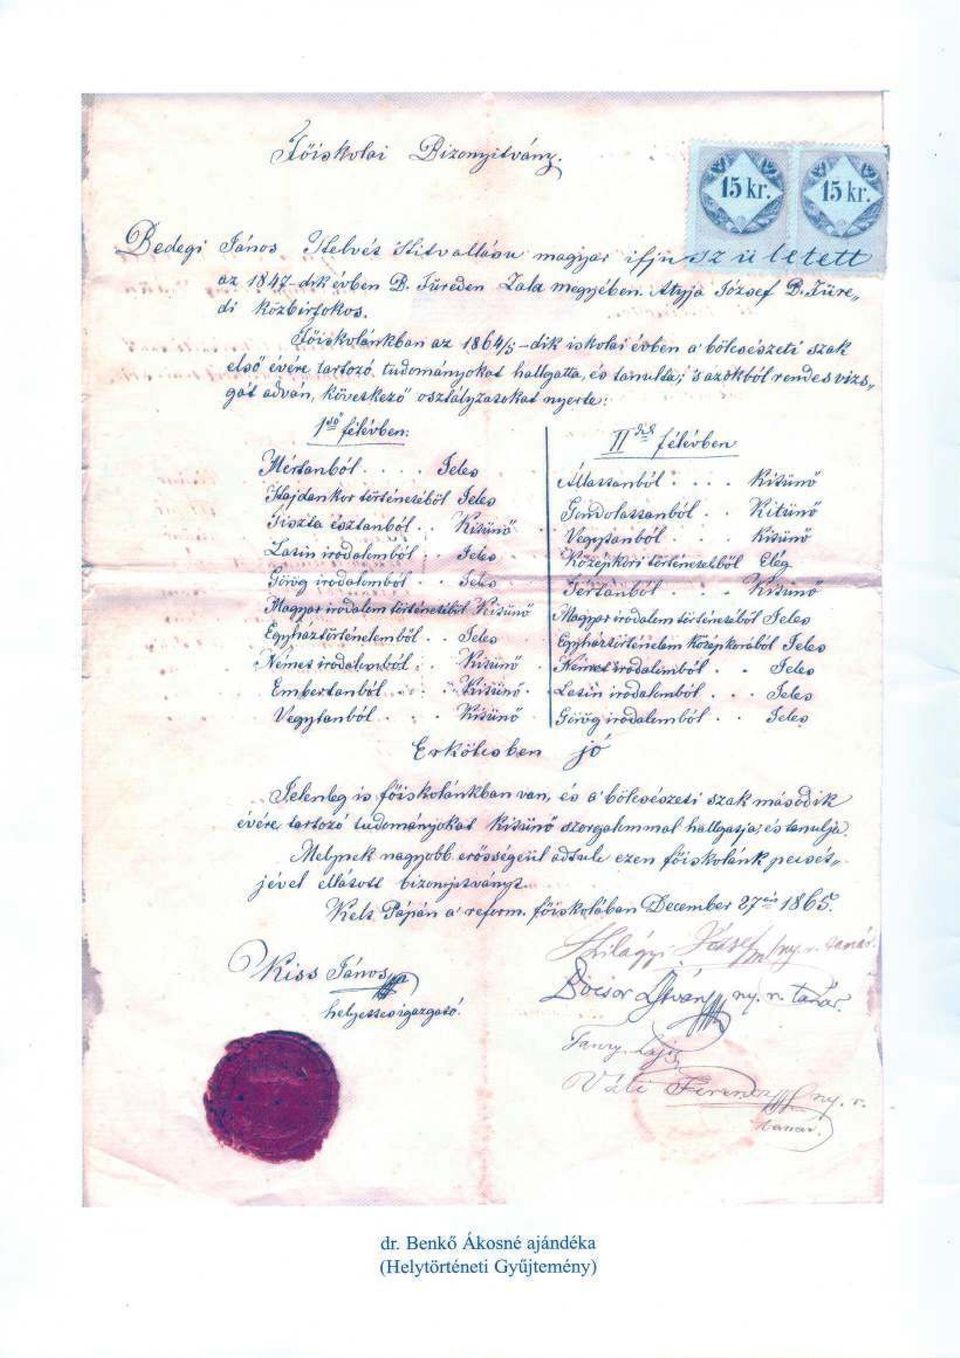 Főiskolai Bizonyítvány.
15 kr. 15 kr.
Bedegi János Helvét Hitvallásu magyar ifju született
az 1847-dik évben B. Füreden Zala megyében. Atyja József B. Füre„
di közbirtokos.
Főiskolánkban az 1864/5-dik iskolai évben a' bölcsészeti szak
első évére tartozó tudományokat hallgatta, és tanulta; 's azokból rendes vizs„
gát adván, következő osztályzatokat nyerte:
1ső félévben:
Mértanból . . . . Jeles
Hajdankor történetéből Jeles
Tiszta észtanból . . Kitünő
Latin irodalomból . . Jeles
Görög irodalomból . . Jeles
Magyar irodalom történetéből Kitünő
Egyháztörténelemből . . Jeles
Német irodalomból . . Kitünő
Embertanból . . . Kitünő
Vegytanból . . . Kitünő
IIdik félévben
Állattanból . . . Kitünő
Gondolattanból . . Kitünő
Vegytanból . . . Kitünő
Középkori történetekből Elég
Tértanból . . . Kitünő
Magyar irodalom történetéből Jeles
Egyháztörténelem középkorából Jeles
Német irodalomból . . Jeles
Latin irodalomból . . . Jeles
Görög irodalomból . . Jeles
Erkölcsben jó
Jelenleg is főiskolánkban van, és a' bölcsészeti szak második
évére tartozó tudományokat kitünő szorgalommal hallgatja; és tanulja.
Melynek nagyobb erősségeül adtuk ezen főiskolánk pecsét„
jével ellátott bizonyitványt.
Kelt Pápán a' reform. főiskolában December 27én 1865.
Kiss János
helyettes igazgató.
Szilágyi József ny. r. tanár.
Bocsor István ny. r. tanár.
Lajos
Váli Ferencz ny. r.
tanár.
dr. Benkő Ákosné ajándéka
(Helytörténeti Gyűjtemény)